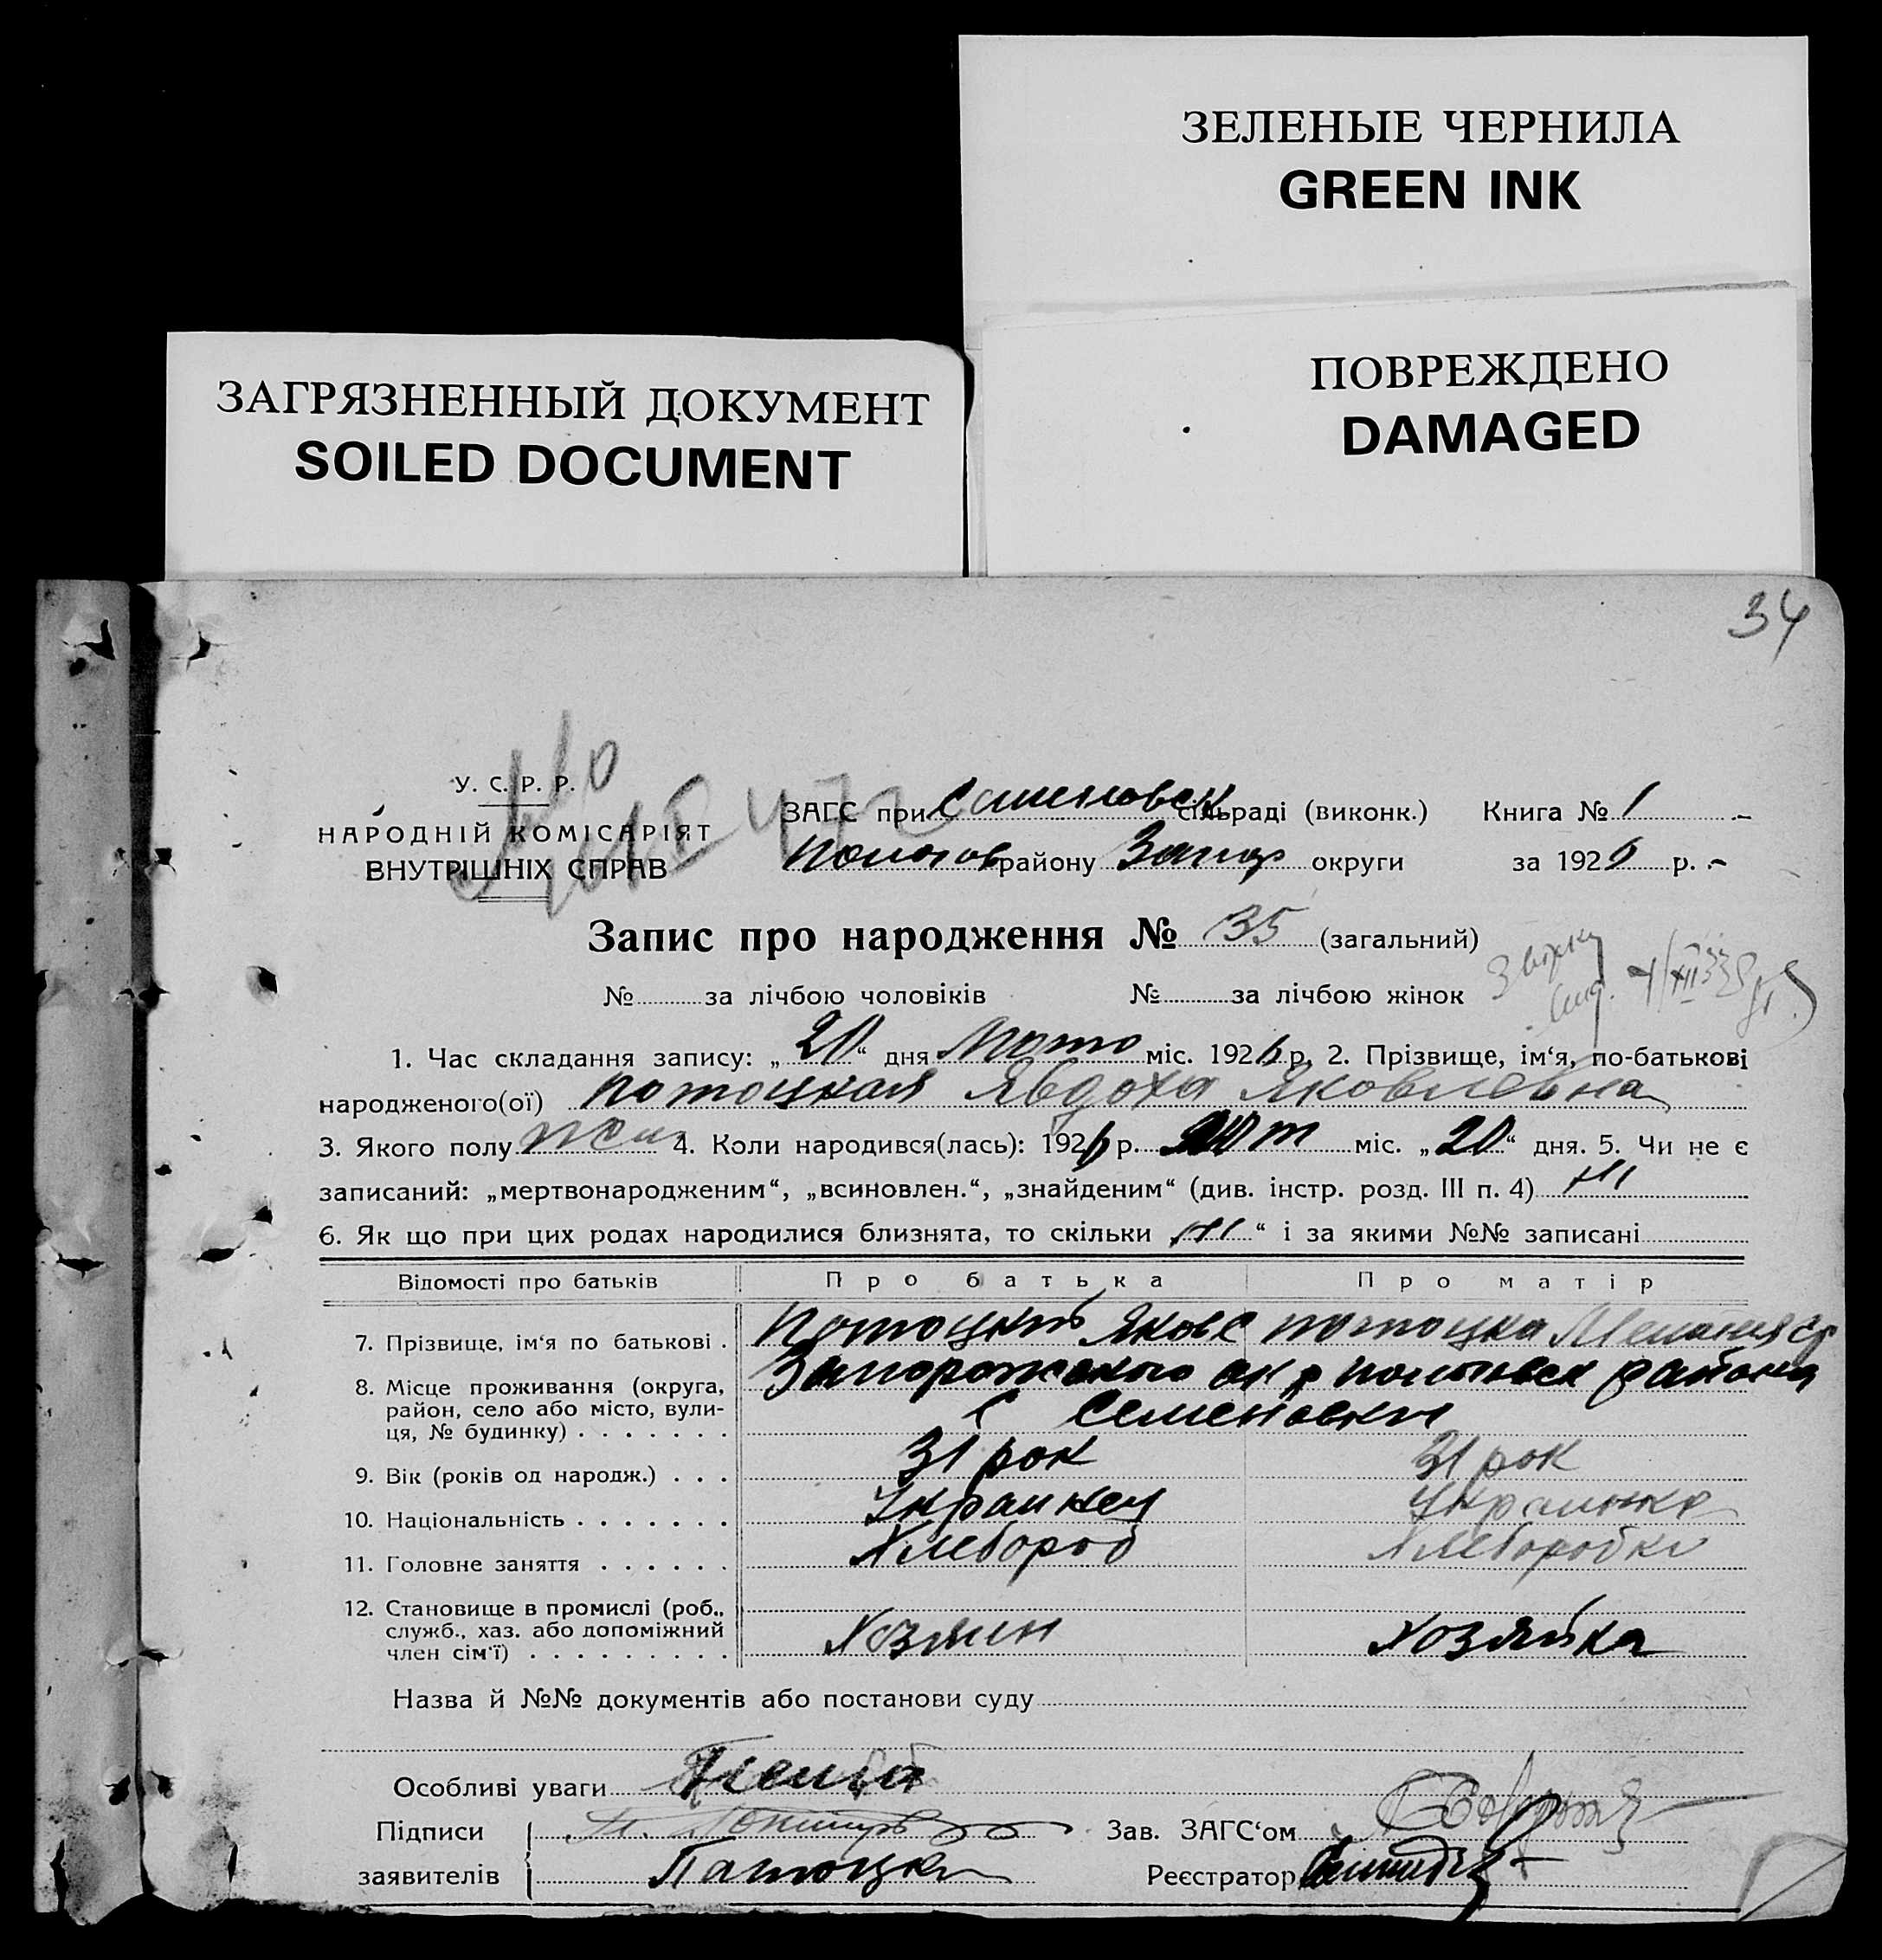 ЗЕЛЕНЫЕ ЧЕРНИЛА
GREEN INK
ПОВРЕЖДЕНО
DAMAGED
ЗАГРЯЗНЕННЫЙ ДОКУМЕНТ
SOILED DOCUMENT
34
У. С. Р. Р.
НАРОДНІЙ КОМІСАРІЯТ
ВНУТРІШНІХ СПРАВ
ЗАГС при Семеновск сільраді (виконк.) Книга № 1
Пологов району Запор округи за 1926 р.
Запис про народження № 35 (загальний)
№ за лічбою чоловіків № за лічбою жінок
1. Час складання запису: „20“ дня міс. 1926 р. 2. Прізвище, ім‘я, по-батькові
народженого(ої) Потоцкая Явдоха Яковлевна
3. Якого полу жин 4. Коли народився(лась): 1926 р. міс. „20“ дня. 5. Чи не є
записаний: „мертвонародженим“, „всиновлен.“, „знайденим“ (див. інстр. розд. III п. 4) ні
6. Як що при цих родах народилися близнята, то скільки ні “ і за якими №№ записані
Відомості про батьків Про батька Про матір
7. Прізвище, ім‘я по батькові . Потоцкий Яков С Потоцка Мелания
8. Місце проживання (округа, район, село або місто, вулиця, № будинку) . . . . . . . Запорожского окр Пологовск района
С Семеновки
9. Вік (років од народж.) . . . 31 рок 31 рок
10. Національність . . . . . . . Украинец Украинка
11. Головне заняття . . . . . . Хлебороб Хлеборобка
12. Становище в промислі (роб., служб., хаз. або допоміжний член сім‘ї) . . . . . . . . . Хозяин Хозяйка
Назва й №№ документів або постанови суду
Особливі уваги
Підписи Зав. ЗАГС‘ом
заявителів Потоцка Реєстратор